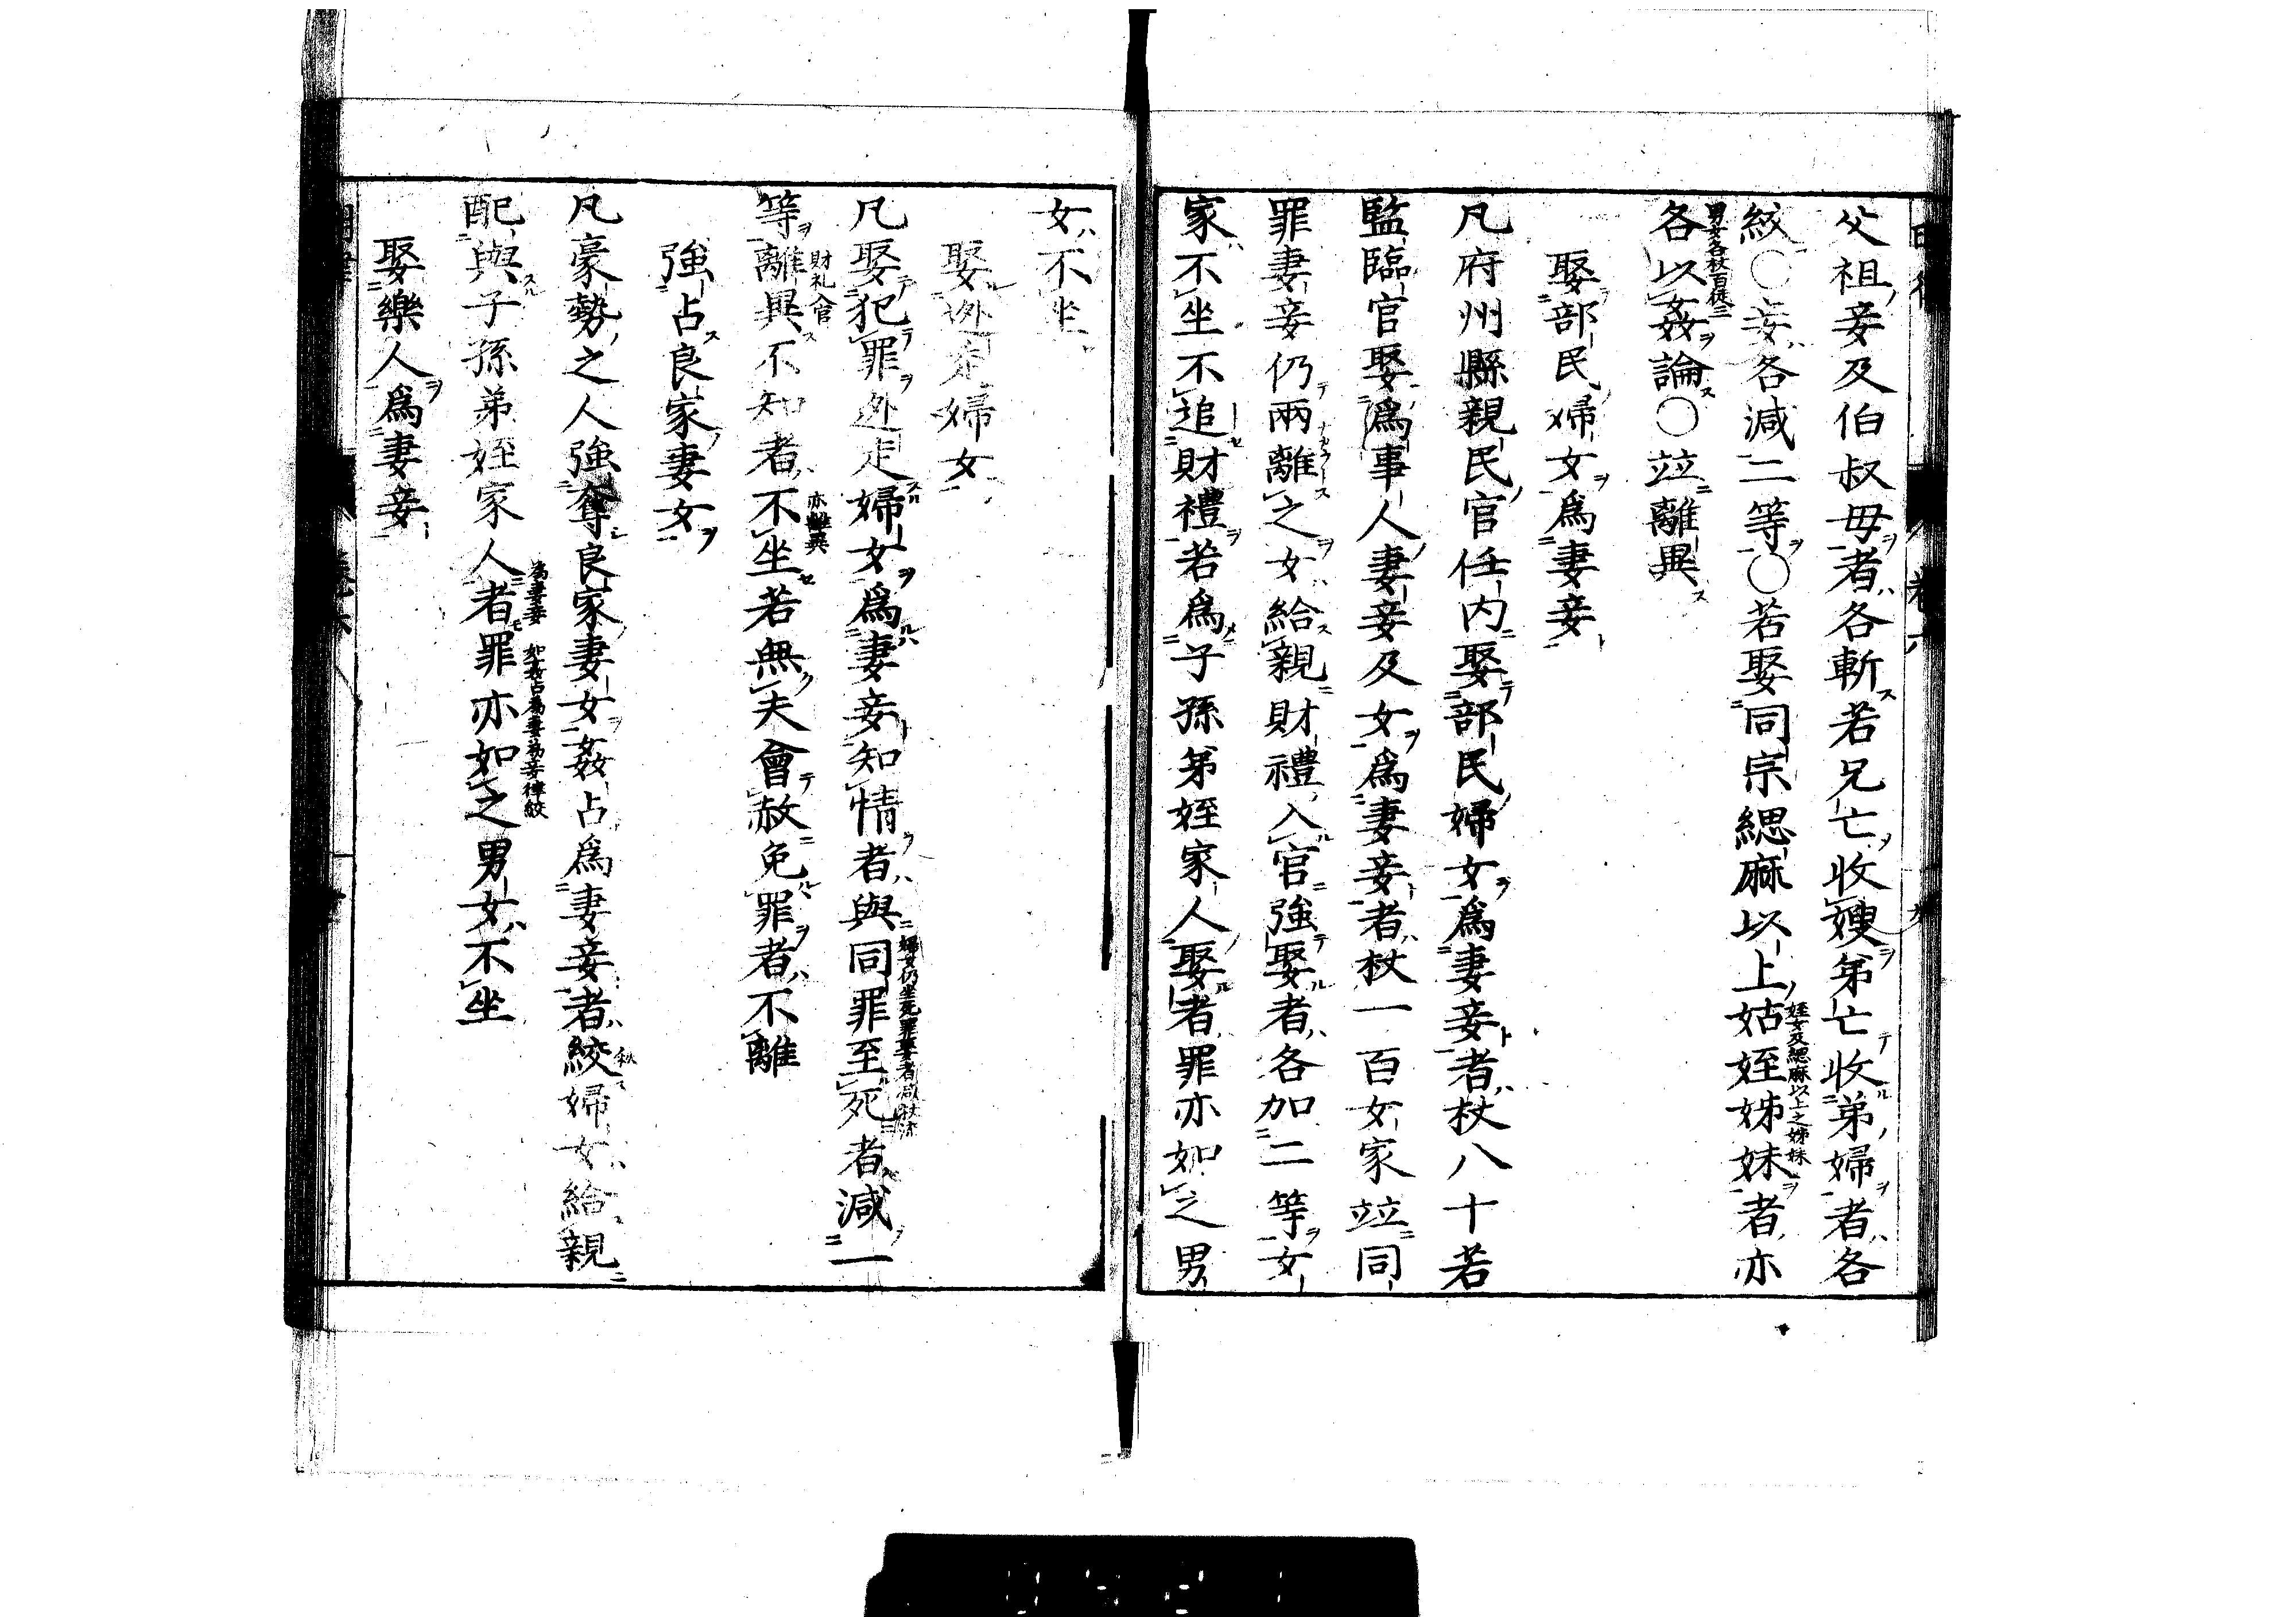 父祖妾及伯叔母者各斬若兄亡收嫂弟亡收弟婦者各
絞○妾各減二等○若娶同宗緦麻以上姑姪姊妹者亦
姪女及緦麻以上之姊妹
各以姦論○竝離異
男女各杖百徒三
娶部民婦女爲妻妾
凡府州縣親民官任内娶部民婦女爲妻妾者杖八十若
監臨官娶爲事人妻妾及女爲妻妾者杖一百女家竝同
罪妻妾仍兩離之女給親財禮入官強娶者各加二等女
家不坐不追財禮若爲子孫弟姪家人娶者罪亦如之男
女不坐
娶逃走婦女
凡娶犯罪逃走婦女爲妻妾知情者與同罪至死者減一
婦女仍坐死罪娶者減杖流
等離異不知者不坐若無夫會赦免罪者不離
財礼入官
亦離異
強占良家妻女
凡豪勢之人強奪良家妻女姦占爲妻妾者絞婦女給親
配與子孫弟姪家人者罪亦如之男女不坐
為妻妾
如姦占為妻為妾律絞
娶樂人爲妻妾